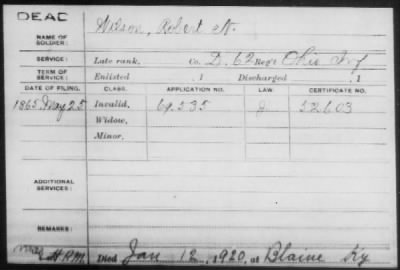 DEAD
NAME OF SOLDIER: Wilson, Robert N.
SERVICE: Late rank, Co. D, 62 Reg't Ohio Inf
TERM OF SERVICE: Enlisted , 1 Discharged , 1
DATE OF FILING. CLASS. APPLICATION NO. LAW. CERTIFICATE NO.
1865 May 25 Invalid, 69.535 J 52603
Widow,
Minor,
ADDITIONAL SERVICES:
REMARKS:
H.R.M. Died Jan 12, 1920, at Blaine Ky